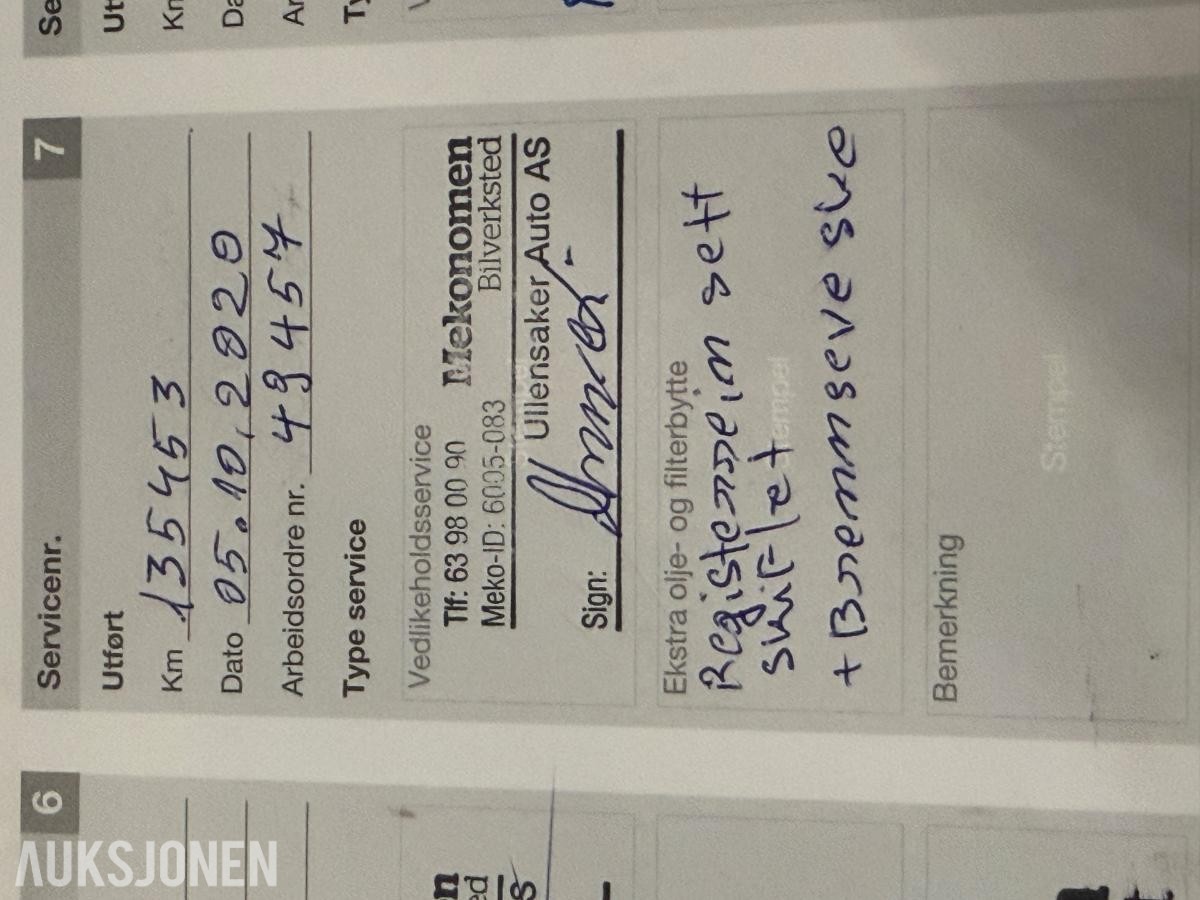 Servicenr. 7
Utført
Km 135453
Dato 05.10.2020
Arbeidsordre nr. 49457
Type service
Vedlikeholdsservice
Tlf: 63 98 00 90 Mekonomen
Meko-ID: 6005-083 Bilverksted
Ullensaker Auto AS
Sign:
Ekstra olje- og filterbytte
Registerreim sett
skiflet
+ Bremmseveske
Stempel
Bemerkning
Stempel
6
AUKSJONEN